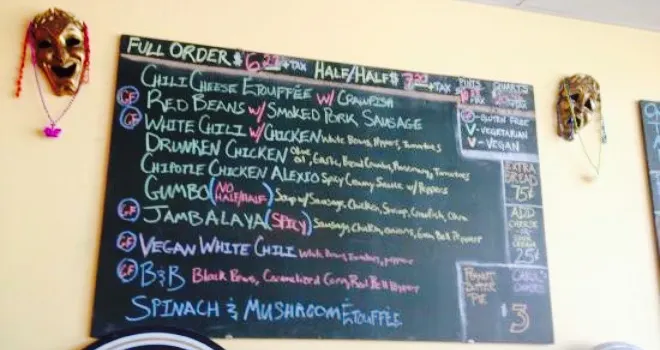 FULL ORDER $ 6.25 +TAX HALF/HALF $ 7.25 +TAX
CHILI CHEESE ÉTOUFFÉE W/ CRAWFISH
GF RED BEANS W/ SMOKED PORK SAUSAGE
GF WHITE CHILI W/ CHICKEN White Beans, Peppers, Tomatoes
DRUNKEN CHICKEN Olive oil, Garlic, Bread Crumbs, Rosemary, Tomatoes
CHIPOTLE CHICKEN ALEXIO Spicy Creamy Sauce w/ Peppers
GUMBO (NO HALF/HALF) Soup w/ Sausage, Chicken, Shrimp, Crawfish, Okra
GF JAMBALAYA (SPICY) Sausage, Chicken, onions, Green Bell Pepper
GF VEGAN WHITE CHILI White Beans, Tomatoes, peppers
GF B&B Black Beans, Caramelized Corn, Red Bell Pepper
SPINACH & MUSHROOM ÉTOUFFÉE
PINTS QUARTS
GF - GLUTEN FREE
V - VEGETARIAN
V - VEGAN
EXTRA
BREAD
75¢
ADD
CHEESE
OR
SOUR CREAM
25¢
PEANUT
BUTTER
PIE
$3